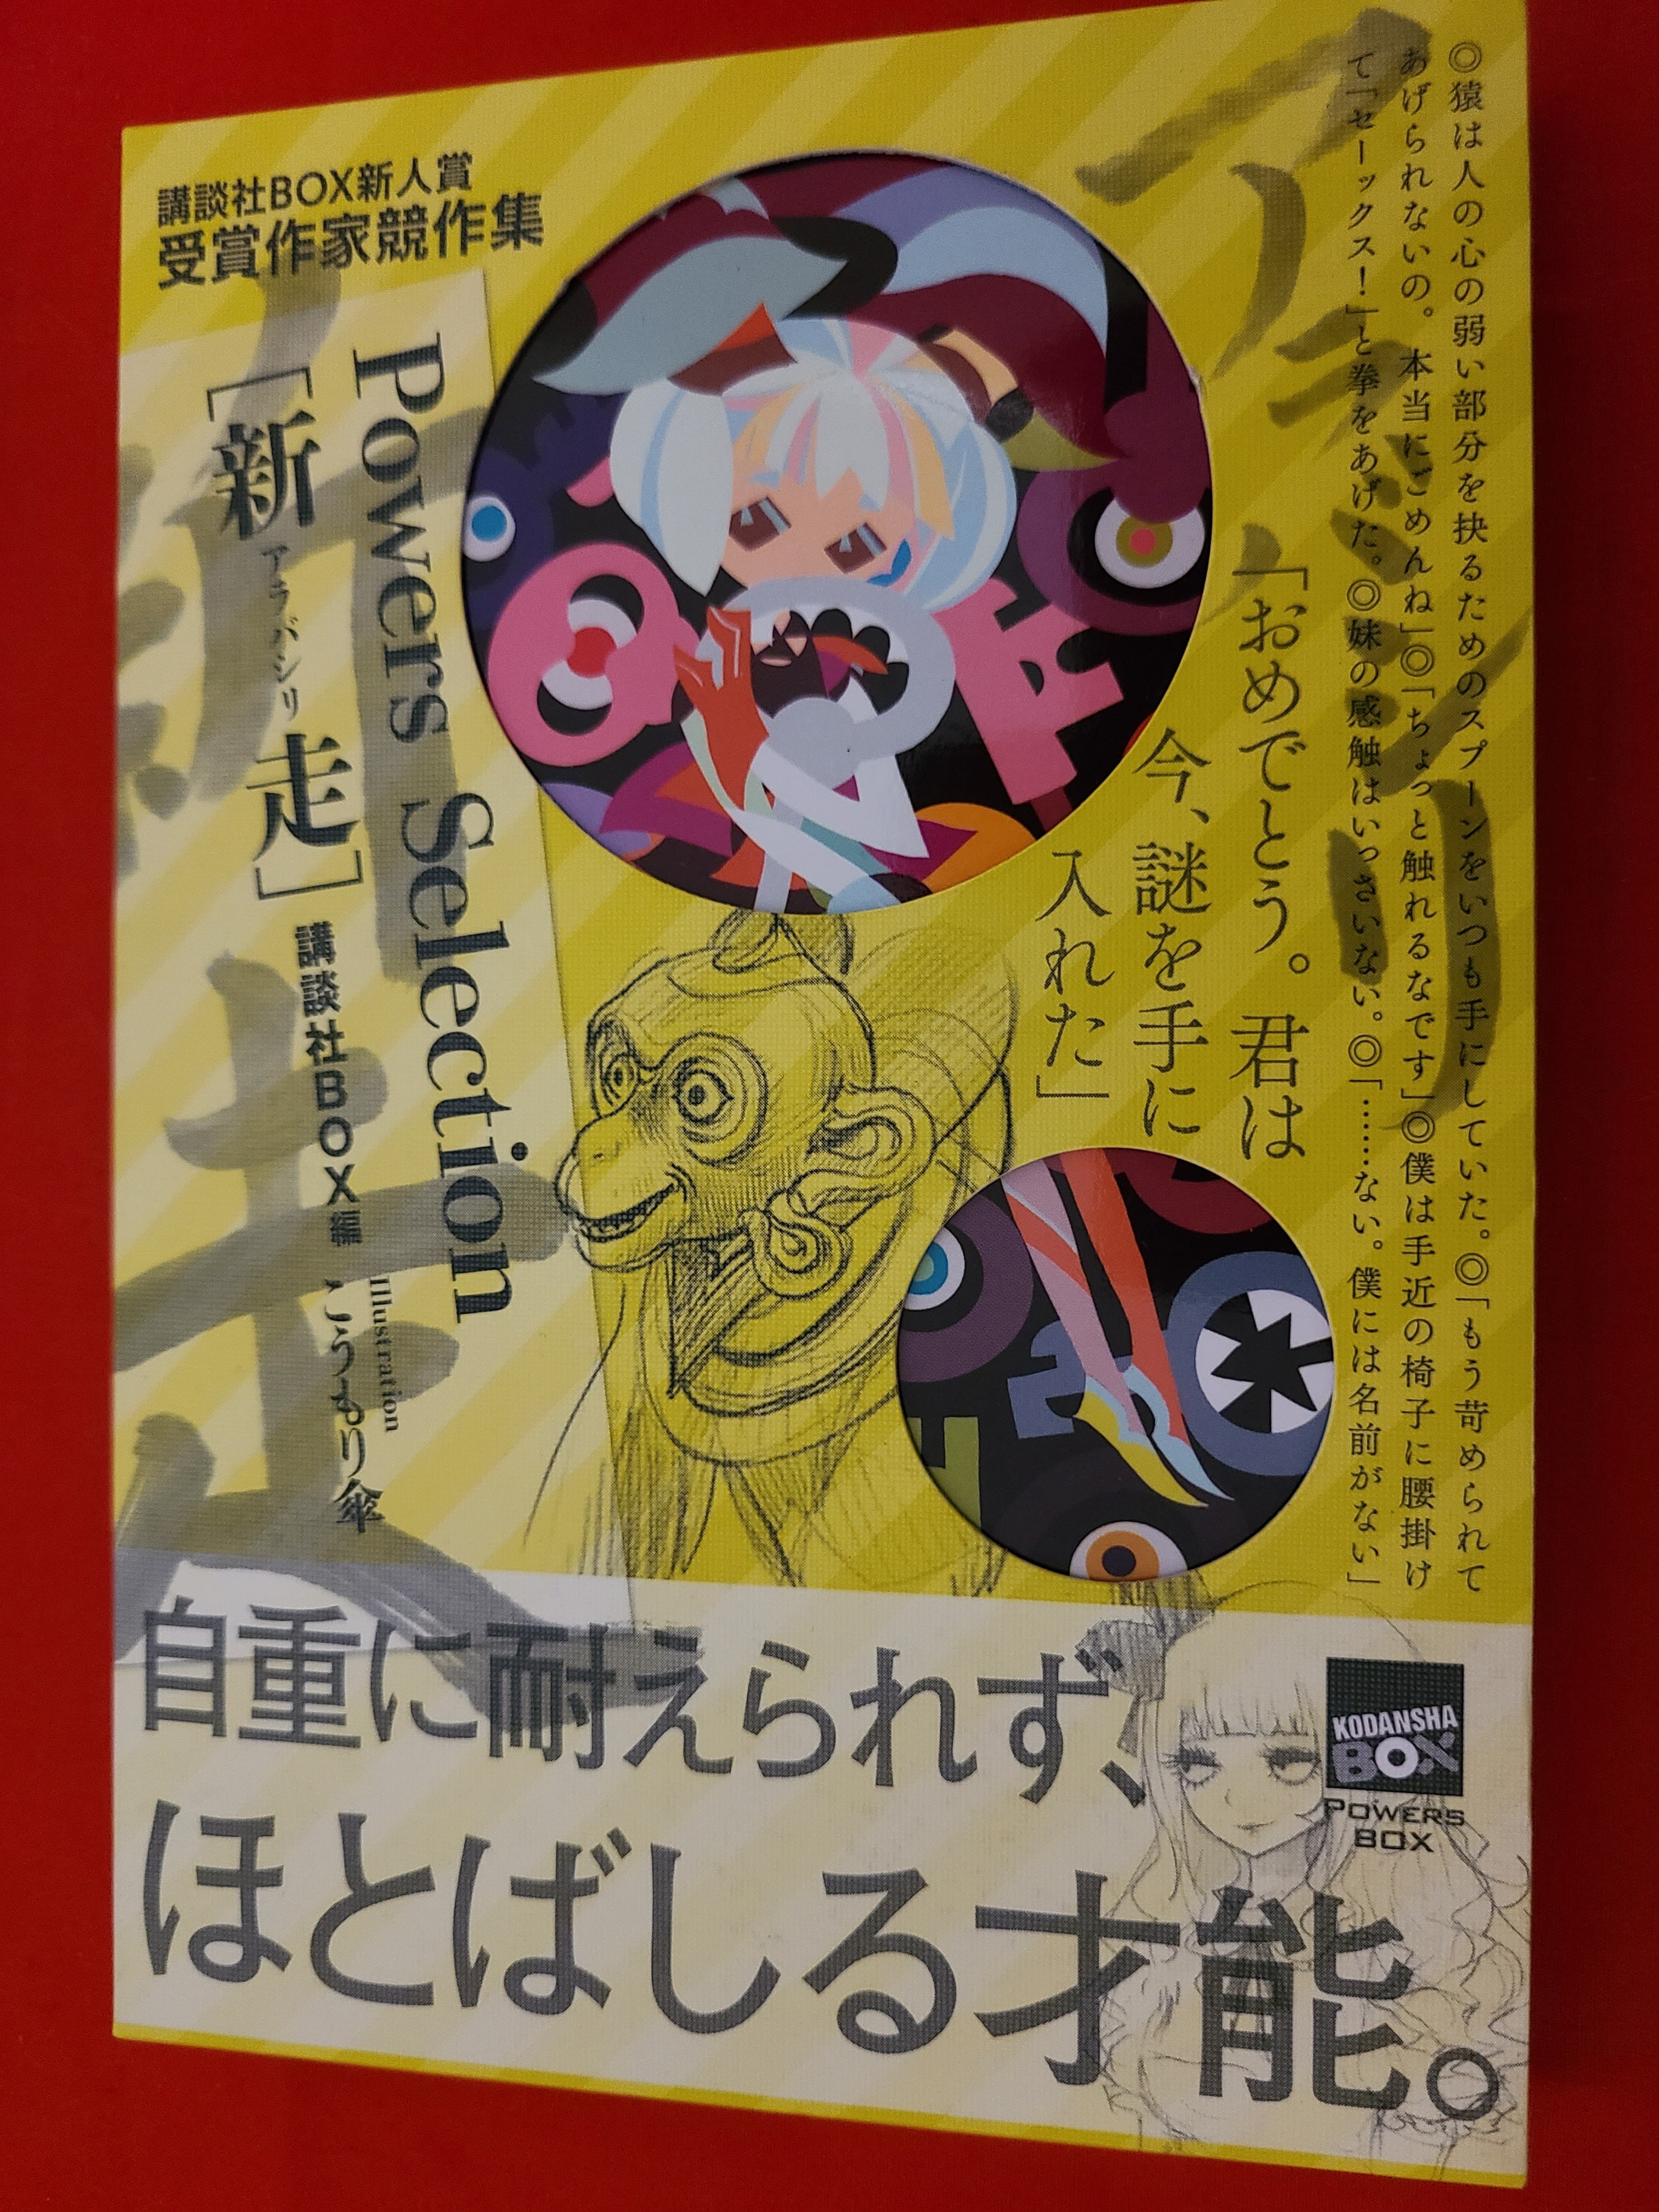 ◎猿は人の心の弱い部分を抉るためのスプーンをいつも手にしていた。◎「もう苛められて
あげられないの。本当にごめんね」◎「ちょっと触れるなです」◎僕は手近の椅子に腰掛け
て「セーックス！」と拳をあげた。◎妹の感触はいっさいない。◎「……ない。僕には名前がない」
アラバシリ
「おめでとう。君は
今、謎を手に
入れた」
講談社BOX新人賞
受賞作家競作集
Powers Selection
［新走］
アラバシリ
講談社BOX編
Illustration
こうもり傘
新走
自重に耐えられず、
ほとばしる才能。
KODANSHA
BOX
POWERS
BOX